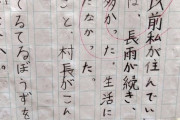 以前私が住んでい
は、長雨が続き、
多かった。生活に
たなかった。
こと 村長がこん
てるてるぼうずを
へ。